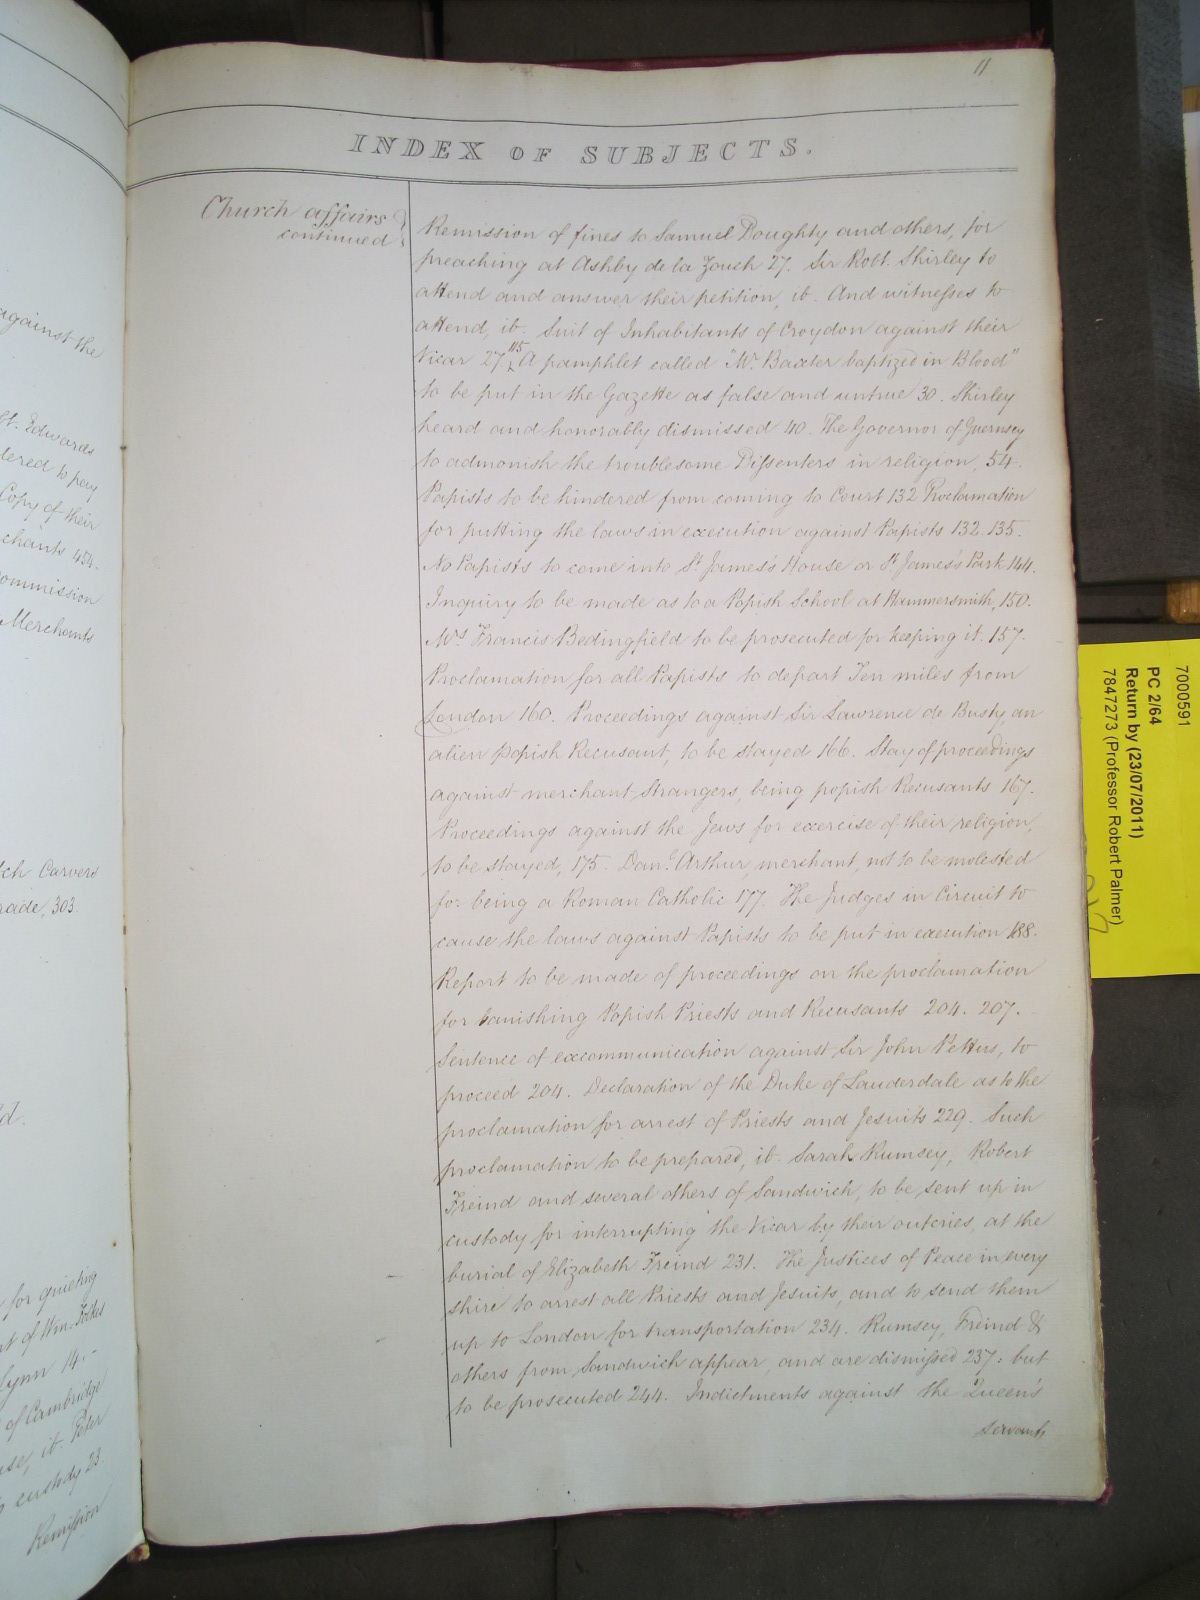 11
INDEX OF SUBJECTS.
Church affairs
continued
Remission of fines to Samuel Doughty and others, for
preaching at Ashby de la Zouch 27. Sir Robt. Shirley to
attend and answer their petition, ib. And witnesses to
attend, ib. Suit of Inhabitants of Croydon against their
Vicar 27. 115 A pamphlet called "Mr. Baxter baptized in Blood"
to be put in the Gazette as false and untrue 30. Shirley
heard and honorably dismissed 40. The Governor of Guernsey
to admonish the troublesome Dissenters in religion, 54.
Papists to be hindered from coming to Court 132 Proclamation
for putting the laws in execution against Papists 132. 135.
No Papists to come into St. James's House or St. James's Park 144.
Inquiry to be made as to a Popish School at Hammersmith, 150.
Mrs. Francis Bedingfield to be prosecuted for keeping it. 157.
Proclamation for all Papists to depart Ten miles from
London 160. Proceedings against Sir Lawrence de Busty, an
alien popish Recusant, to be stayed 166. Stay of proceedings
against merchant Strangers, being popish Recusants 167.
Proceedings against the Jews for exercise of their religion,
to be stayed, 175. Danl. Arthur, merchant, not to be molested
for being a Roman Catholic 177. The Judges in Circuit to
cause the laws against Papists to be put in execution 188.
Report to be made of proceedings on the proclamation
for banishing Popish Priests and Recusants 204. 207.
Sentence of excommunication against Sir John Pettus, to
proceed 204. Declaration of the Duke of Lauderdale as to the
proclamation for arrest of Priests and Jesuits 229. Such
proclamation to be prepared, ib. Sarah Rumsey, Robert
Freind and several others of Sandwich, to be sent up in
custody for interrupting the Vicar by their outcries, at the
burial of Elizabeth Freind 231. The Justices of Peace in every
shire to arrest all Priests and Jesuits, and to send them
up to London for transportation 234. Rumsey, Freind &
others from Sandwich appear, and are dismissed 237: but
to be prosecuted 244. Indictments against the Queen's
servants
against the
St. Edwards
dered to pay
Copy of their
chants 454.
ommission
Merchants
tch Carvers
rade, 303.
for quieting
t of Wm. Fookes
Lynn 14.-
of Cambridge
use, ib. Peter
custody 23.
Remission
7000591
PC 2/64
Return by (23/07/2011)
7847273 (Professor Robert Palmer)